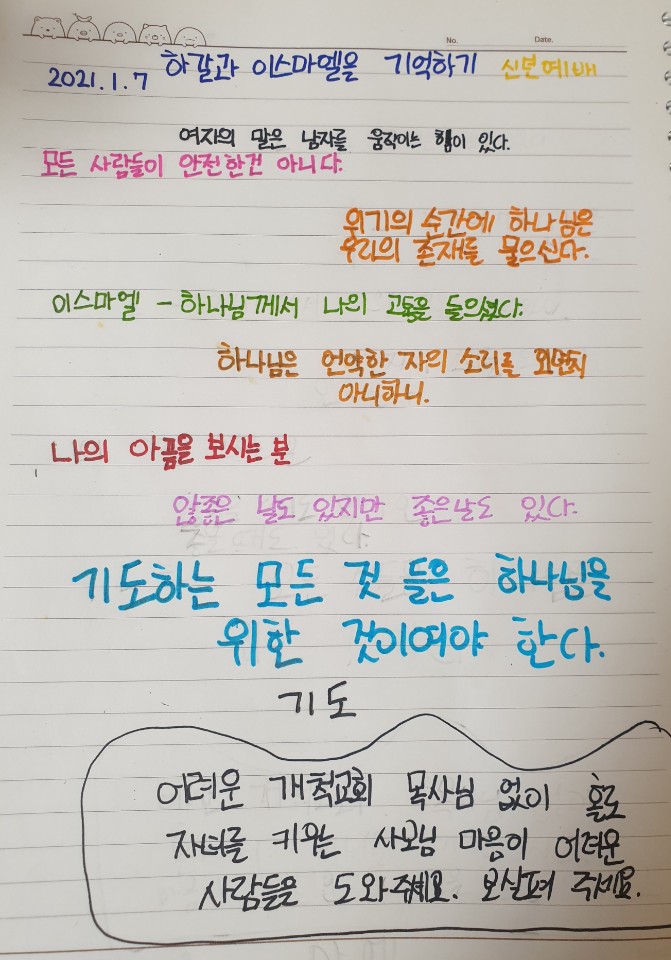 No. Date.
2021.1.7 하갈과 이스마엘을 기억하기 신년예배
여자의 말은 남자를 움직이는 힘이 있다.
모든 사람들이 안전한건 아니다.
위기의 순간에 하나님은
우리의 존재를 물으신다.
이스마엘 - 하나님께서 나의 고통을 들으셨다.
하나님은 언약한 자의 소리를 외면치
아니하니.
나의 아픔을 보시는 분
않좋은 날도 있지만 좋은날도 있다.
기도하는 모든 것 들은 하나님을
위한 것이여야 한다.
기도
어려운 개척교회 목사님 없이 홀로
자녀를 키우는 사모님 마음이 어려운
사람들을 도와주세요. 보살펴 주세요.